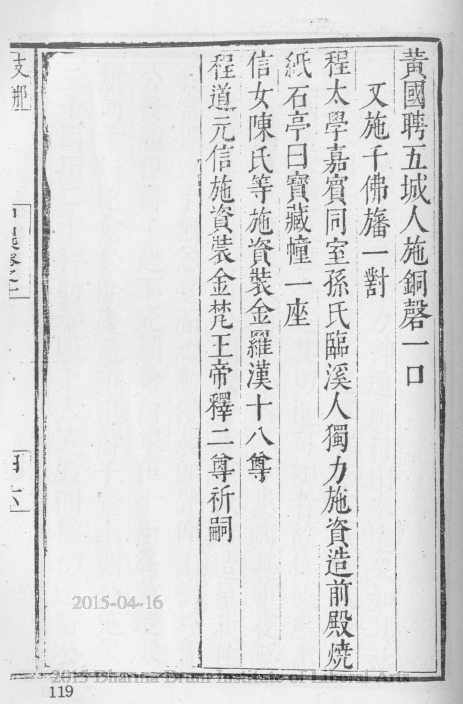 黃國聘五城人施銅磬一口
又施千佛旛一對
程太學嘉賓同室孫氏臨溪人獨力施資造前殿燒
紙石亭曰寶藏幢一座
信女陳氏等施資裝金羅漢十八尊
程道元信施資裝金梵王帝釋二尊祈嗣
2015-04-16
2015 Dharma Drum Institute of Liberal Arts
119